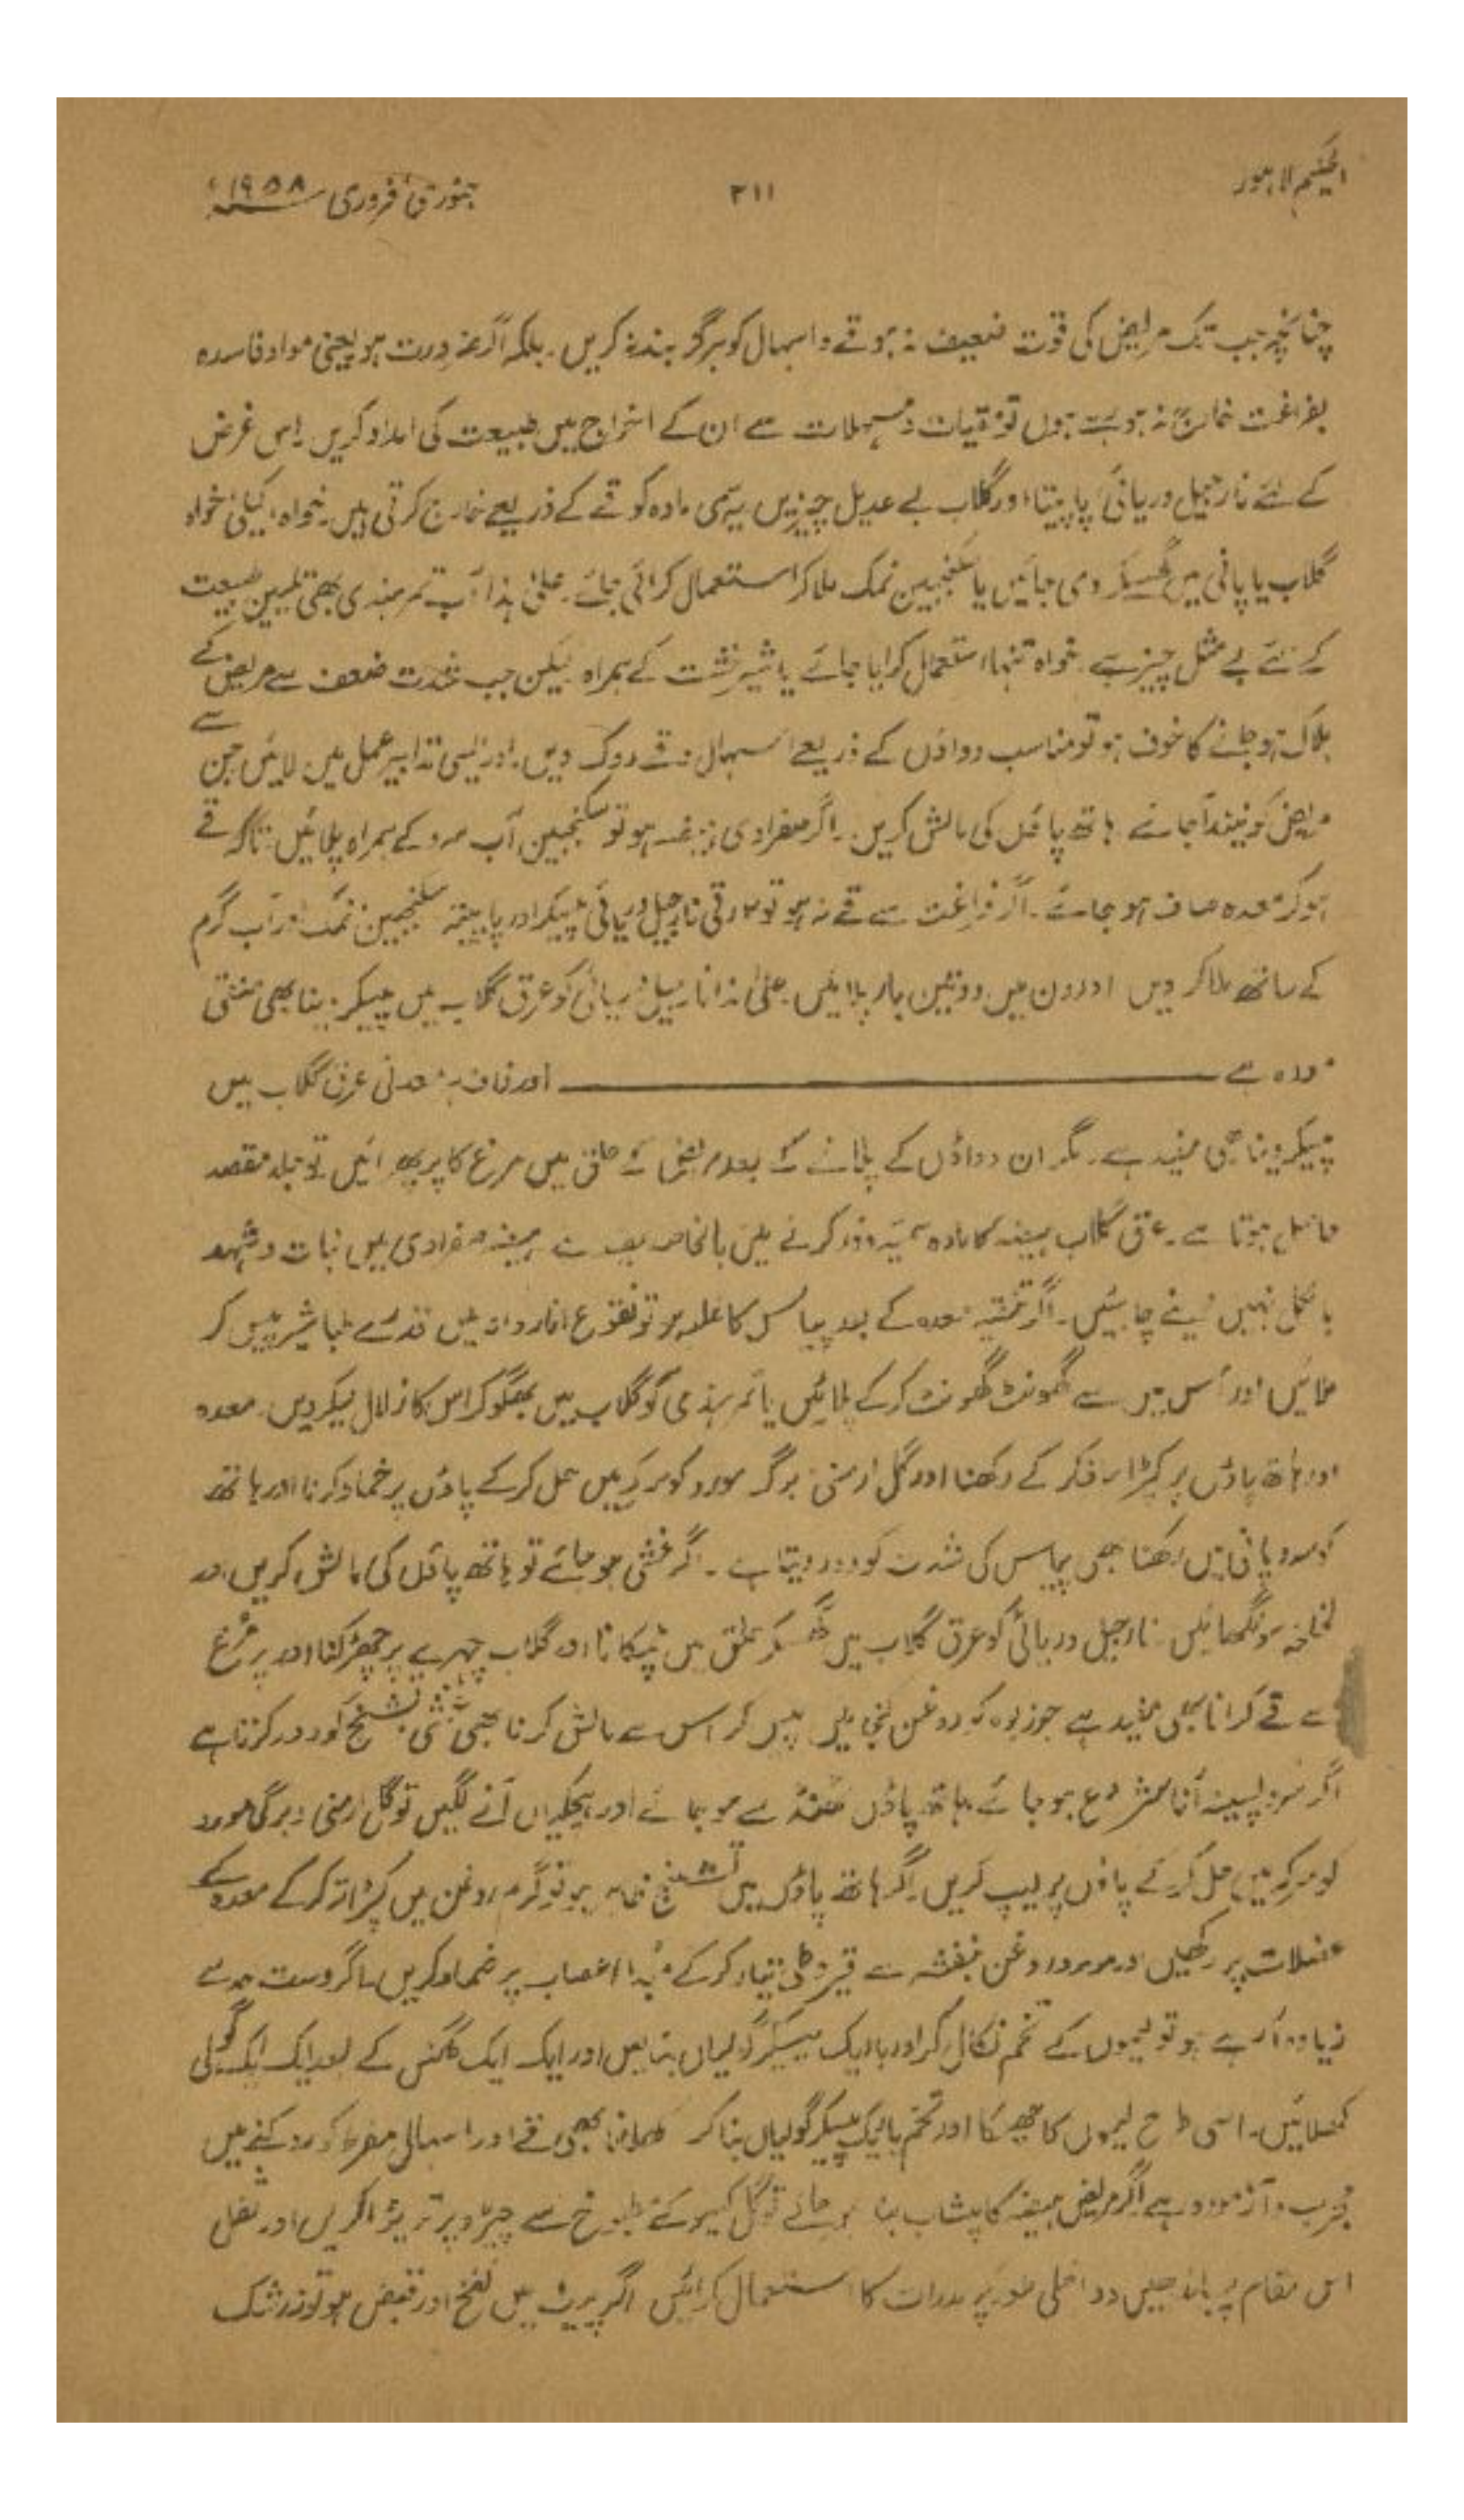 الحکیم لاہور
۲۱۱
جنوری فروری ۱۹۵۸ء
چنانچہ جب تک مریض کی قوت ضعیف نہ ہو قے و اسہال کو ہرگز بند نہ کریں۔ بلکہ اگر ضرورت ہو یعنی مواد فاسدہ
بفراغت خارج نہ ہو رہے ہوں تو مقیات و مسہلات سے ان کے اخراج میں طبیعت کی امداد کریں۔ اس غرض
کے لئے نارجیل دریائی پاپیتا اور گلاب بے عدیل چیزیں ہیں سمی مادہ کو قے کے ذریعے خارج کرتی ہیں۔ خواہ اکیلی خواہ
گلاب یا پانی میں گھسیکر دی جائیں یا سکنجبین نمک ملا کر استعمال کرائی جائے۔ علیٰ ہذا آب تمر ہندی بھی تلیین طبیعت
کے لئے بے مثل چیز ہے۔ خواہ تنہا استعمال کرایا جائے یا شیر خشت کے ہمراہ لیکن جب شدت ضعف سے مریض کے
ہلاک ہو جانے کا خوف ہو تو مناسب دواؤں کے ذریعے اسہال و قے روک دیں۔ اور ایسی تدابیر عمل میں لائیں جن سے
مریض کو نیند آ جائے ہاتھ پاؤں کی مالش کریں۔ اگر صفراوی ہیضہ ہو تو سکنجبین آب سرد کے ہمراہ پلائیں تاکہ قے
ہو کر معدہ صاف ہو جائے۔ اگر فراغت سے قے نہ ہو تو ۴ رتی نارجیل دریائی پیسکر اور پاپیتہ سکنجبین نمک اور آب گرم
کے ساتھ ملا کر دیں اور دن میں دو تین بار پلائیں۔ علیٰ ہذا نارجیل دریائی کو عرق گلاب میں پیسکر دینا بھی منقی
معدہ ہے ——— اور فاد زہر معدنی عرق گلاب میں
پیسکر دینا بھی مفید ہے۔ مگر ان دواؤں کے پلانے کے بعد مریض کے حلق میں مرغ کا پر پھرائیں تو جلد مقصد
حاصل ہوتا ہے۔ عرق گلاب ہیضہ کا مادہ سمیہ دور کرنے میں بالخاصہ ہے ہیضہ صفراوی میں نبات و شہد
بالکل نہیں دینے چاہئیں۔ اگر تنقیہ معدہ کے بعد پیاس کا غلبہ ہو تو نقوع انار دانہ میں قدرے طباشیر پیس کر
ملائیں اور اس میں سے گھونٹ گھونٹ کر کے پلائیں یا تمر ہندی کو گلاب میں بھگو کر اس کا زلال لیکر دیں۔ معدہ
اور ہاتھ پاؤں پر کپڑا تر کر کے رکھنا اور گل ارمنی برگ مورد کو سرکہ میں حل کر کے پاؤں پر ضماد کرنا اور ہاتھ
کو سرد پانی میں رکھنا بھی پیاس کی شدت کو دور دیتا ہے۔ اگر غشی ہو جائے تو ہاتھ پاؤں کی مالش کریں اور
لخلخہ سونگھائیں نارجیل دریائی کو عرق گلاب میں گھسکر حلق میں ٹپکانا اور گلاب چہرے پر چھڑکنا اور پر مرغ
سے قے کرانا بھی مفید ہے جوزبوہ کو روغن کنجد میں پیس کر اس سے مالش کرنا بھی تشنج کو دور کرتا ہے
اگر سرد پسینہ آنا شروع ہو جائے ہاتھ پاؤں ٹھنڈے ہو جائے اور ہچکیاں آنے لگیں تو گل ارمنی و برگ مورد
کو سرکہ میں حل کر کے پاؤں پر لیپ کریں۔ اگر ہاتھ پاؤں میں تشنج ظاہر ہو تو گرم روغن میں کپڑا تر کر کے معدہ کے
عضلات پر رکھیں اور موم و روغن بنفشہ سے قیروطی تیار کر کے مبدا اعصاب پر ضماد کریں۔ اگر دست حد سے
زیادہ آ رہے ہو تو لیموں کے تخم نکال کر اور باریک پیسکر گولیاں بنالیں اور ایک ایک گھنٹے کے بعد ایک ایک گولی
کھلائیں۔ اسی طرح لیموں کا چھلکا اور تخم باریک پیسکر گولیاں بنا کر کھلانا بھی قے اور اسہال مفرط کو روکنے میں
مجرب و آزمودہ ہے اگر مریض ہیضہ کا پیشاب بند ہو جائے تو گل کیسو کے طبوخ سے پیڑو پر تریڑا کریں اور ثفل
اس مقام پر باندھیں دو اخلی طور پر مدرات کا استعمال کرائیں اگر پیٹ میں نفخ اور قبض ہو تو زرشک